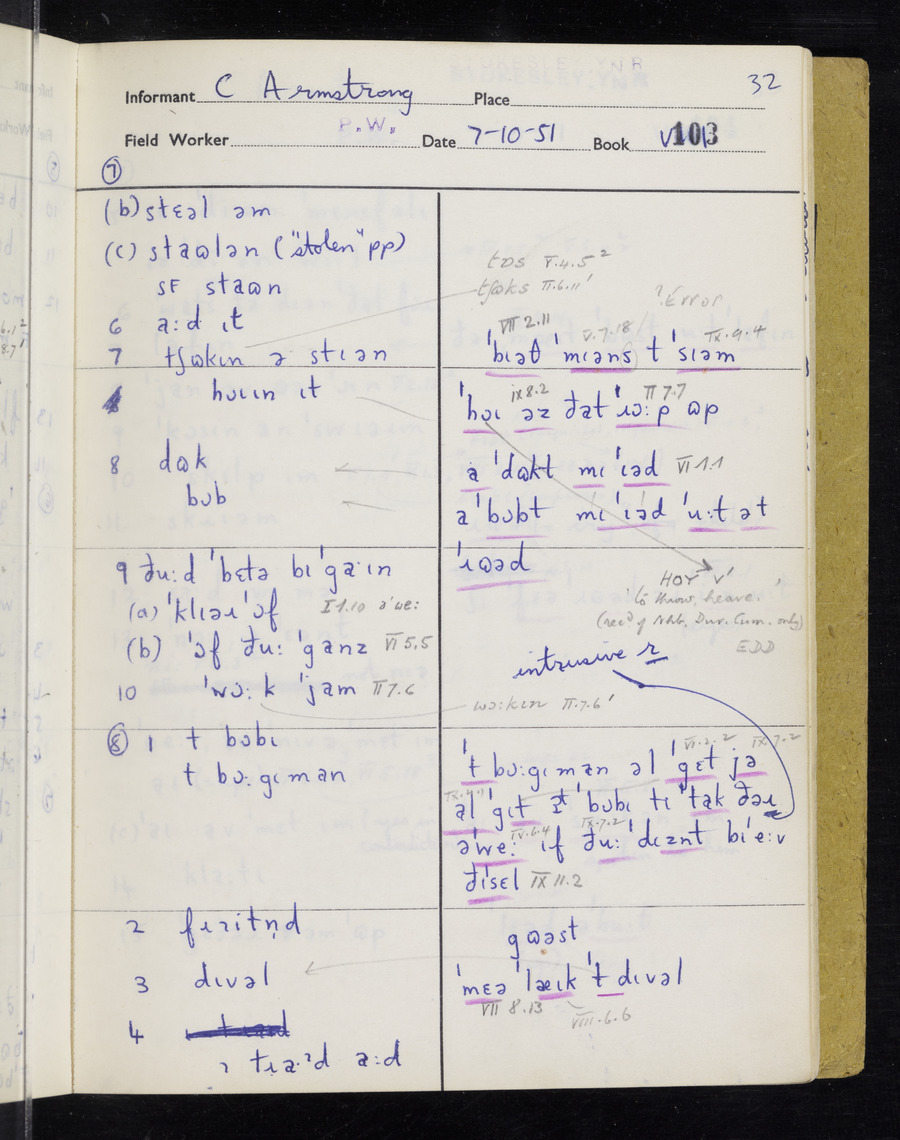 32
Informant C Armstrong Place
Field Worker P.W. Date 7-10-51 Book 103
⑦
(b) stɛəl əm
(c) staɷlən ("stolen" pp)
SF staɷn
6 a:d ɩt
7 tʃɷkɩn ə stɩən
hʋɩɩn ɩt
8 dɷk
bʋb
9 ðu:d ˈbɛtə bɩˈga·ɩn
(a) ˈklɩəɹ ˈɔf I 1.10 əˈwe:
(b) ˈɔf ðu: ˈganz VI 5.5
10 ˈwɔ:k ˈjam II 7.6
⑧ 1 t bʋbɩ
t bʋ·gɩmən
2 fɹɩtn̩d
3 dɩvəl
4
tɹa:ˀd a:d
tɒs V.4.5²
tʃɷks II.6.11'
?Error
VII 2.11 V.7.18 IX.9.4
ˈbɩət ˈmɩəns t ˈsɩəm
ix 8.2 II 7.7
ˈhʋɩ əz ðat ˈɩɔ:p ɷp
a ˈdɷkt mɩ ˈɩəd VI 1.1
a ˈbʋbt mɩ ˈɩəd ˈu:t ət
ˈɹɷəd
HOY v'
to throw, heave.
(rec'd Nhb, Dur. Cum. only)
EDD
intrusive r
wɔ:kɩn II.7.6'
VI.2.2 IX.7.2
ˈt bʋ·gɩmən əl ˈgɛt jə
əl ˈgɩt t ˈbʋbɩ tɩ ˈtak ðəɹ
IV.6.4 IX.7.2
əˈwe: ɩf ðu: ˈdɩznt bɩˈe:v
ðɩsɛl IX 11.2
gɷəst
ˈmɛə ˈlæɩk ˈt dɩvəl
VII 8.13 VIII.6.6